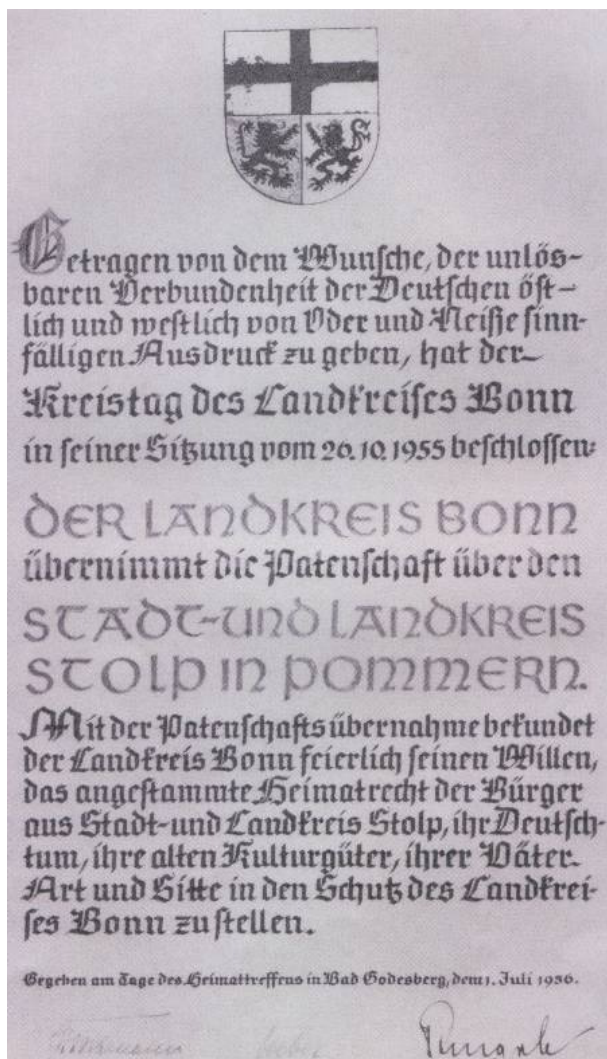 Getragen von dem Wunsche, der unlös-
baren Verbundenheit der Deutschen öst-
lich und westlich von Oder und Neiße sinn-
fälligen Ausdruck zu geben, hat der
Kreistag des Landkreises Bonn
in seiner Sitzung vom 26.10.1955 beschlossen:
DER LANDKREIS BONN
übernimmt die Patenschaft über den
STADT-UND LANDKREIS
STOLP IN POMMERN.
Mit der Patenschaftsübernahme bekundet
der Landkreis Bonn feierlich seinen Willen,
das angestammte Heimatrecht der Bürger
aus Stadt-und Landkreis Stolp, ihr Deutsch-
tum, ihre alten Kulturgüter, ihrer Väter
Art und Sitte in den Schutz des Landkrei-
ses Bonn zu stellen.
Gegeben am Tage des Heimattreffens in Bad Godesberg, dem 1. Juli 1956.